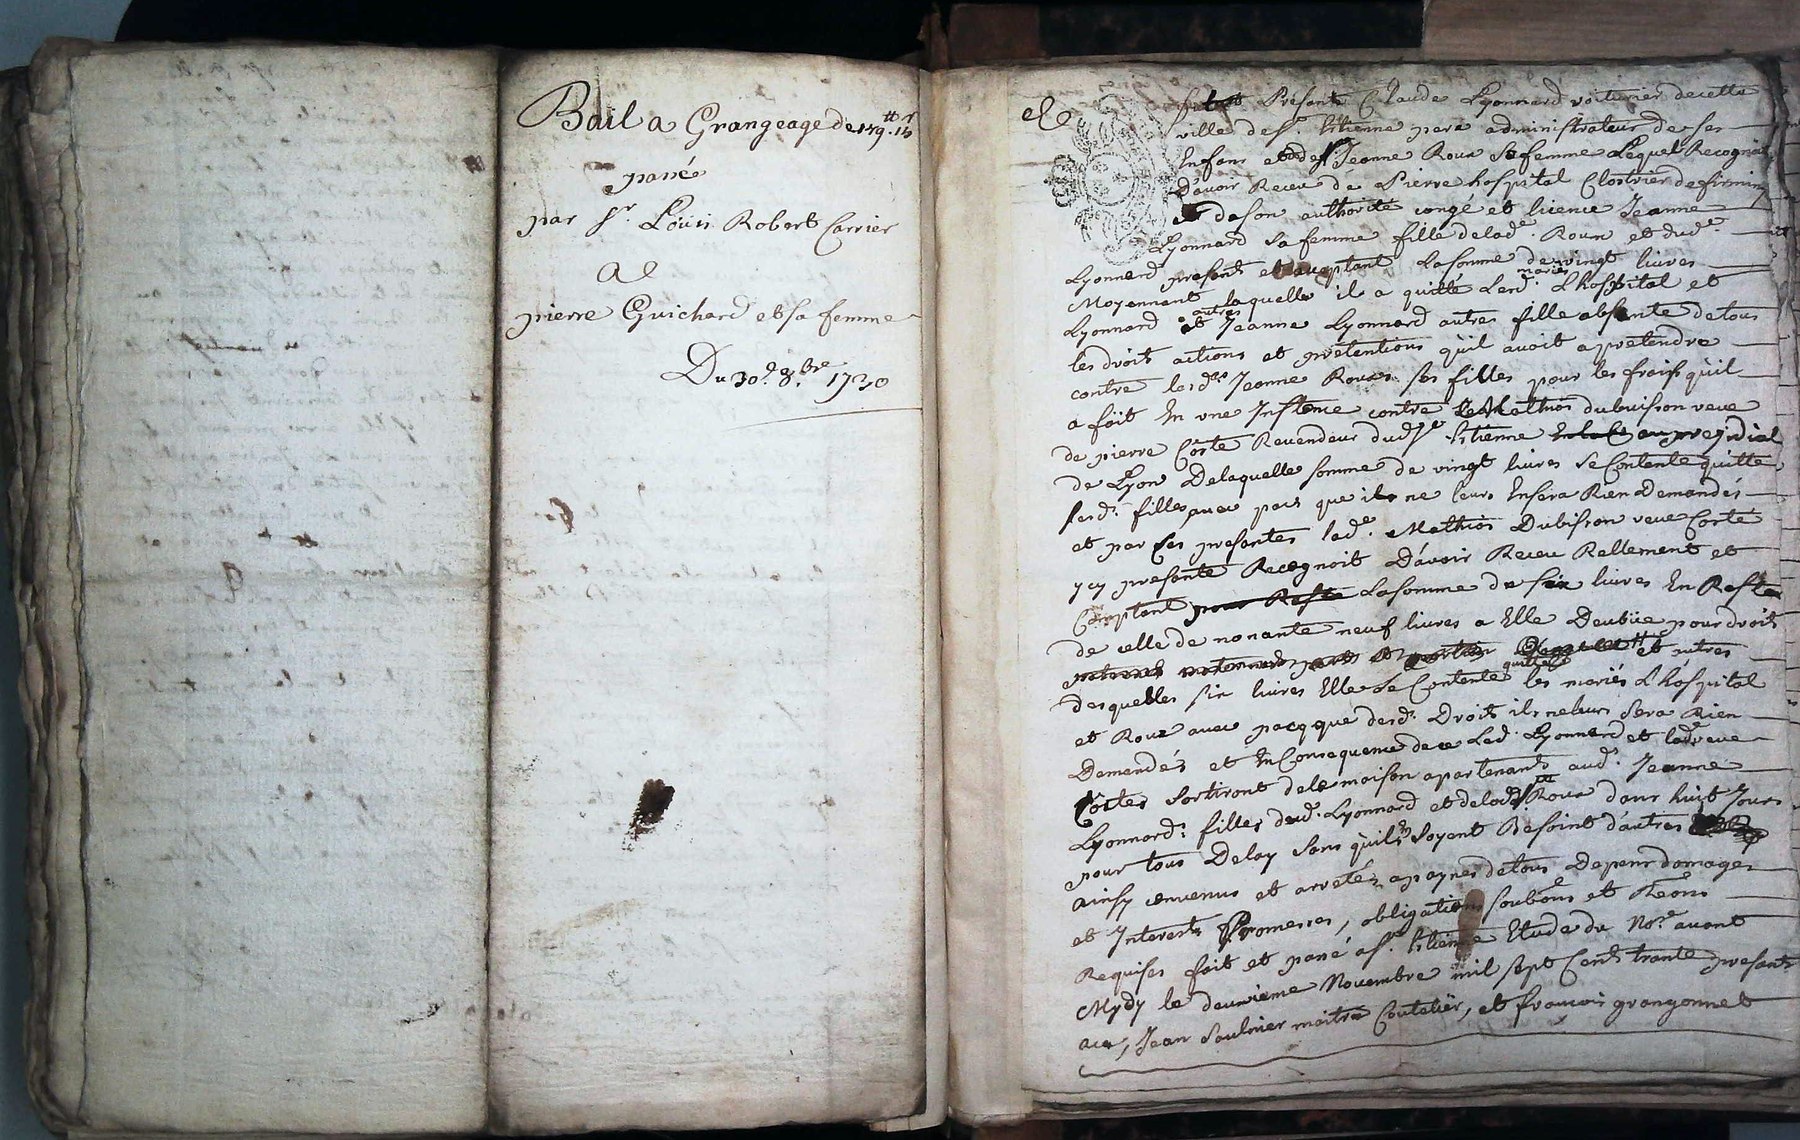 Bail a Grangeage de 159.tt 15
passé
par Sr. Louis Robert Carrier
a
pierre Guichard et sa femme
Du 30e. 8.bre 1730
fut Présent Claude Lyonnard voiturier de cette
ville de St. Etienne pere administrateur de ses
Enfans et de Jeanne Roux sa femme Lequel Recognoit
D'avoir Receu de Pierre hospital Cloutrier de firminy
de son authorité congé et licence Jeanne
Lyonnard sa femme fille de lade. Roux et dud.
Lyonnard presents et aceptant La somme de vingt livres
Moyennant laquelle il a quitté Lesd. mariés L'hospital et
Lyonnard et autres Jeanne Lyonnard autres fille absente de tous
les droits actions et pretentions qu'il avoit a pretendre
contre lesdes Jeanne Roux ses filles pour les frais qu'il
a fait En une Instence contre Mathias dubuisson veuve
de pierre Coste Revendeur dud St Etienne au presidial
de Lyon Delaquelle somme de vingt livres se Contente quitte
sesd. filles avec pais que il ne leurs Ensera Rien Demandés
et par Ces presentes lade. Mathias Dubisson veuve Coste
y cy presente Recognoit D'avoir Receu Rellement et
Comptant pour Reste La somme de six livres En Reste
de celle de nonante neuf livres a Elle Deubüe pour droits
et autres
desquelles six livres Elle se Contente quitte les mariés L'hospital
et Roux avec pacq que desd. Droits il ne leurs sera Rien
Demandés et En Consequence de ce Led. Lyonnard et lade veuve
Costes sortiront de le maison apartenants aud. Jeanne
Lyonnard. filles dud. Lyonnard et delade Roux dans huit Jours
pour tous Delay sans qu'ils soyent Besoint d'autres
ainsy convenus et arretés apaynes de tous Depens domages
et Interests Promesses, obligations soubons et Reons
Requises fait et passé a St. Etienne Etude du Nore. avant
Mydy le deuxieme Novembre mil sept Cents trante presents
a ce, Jean Saulnier maitre Coutelier, et francois grangonnet